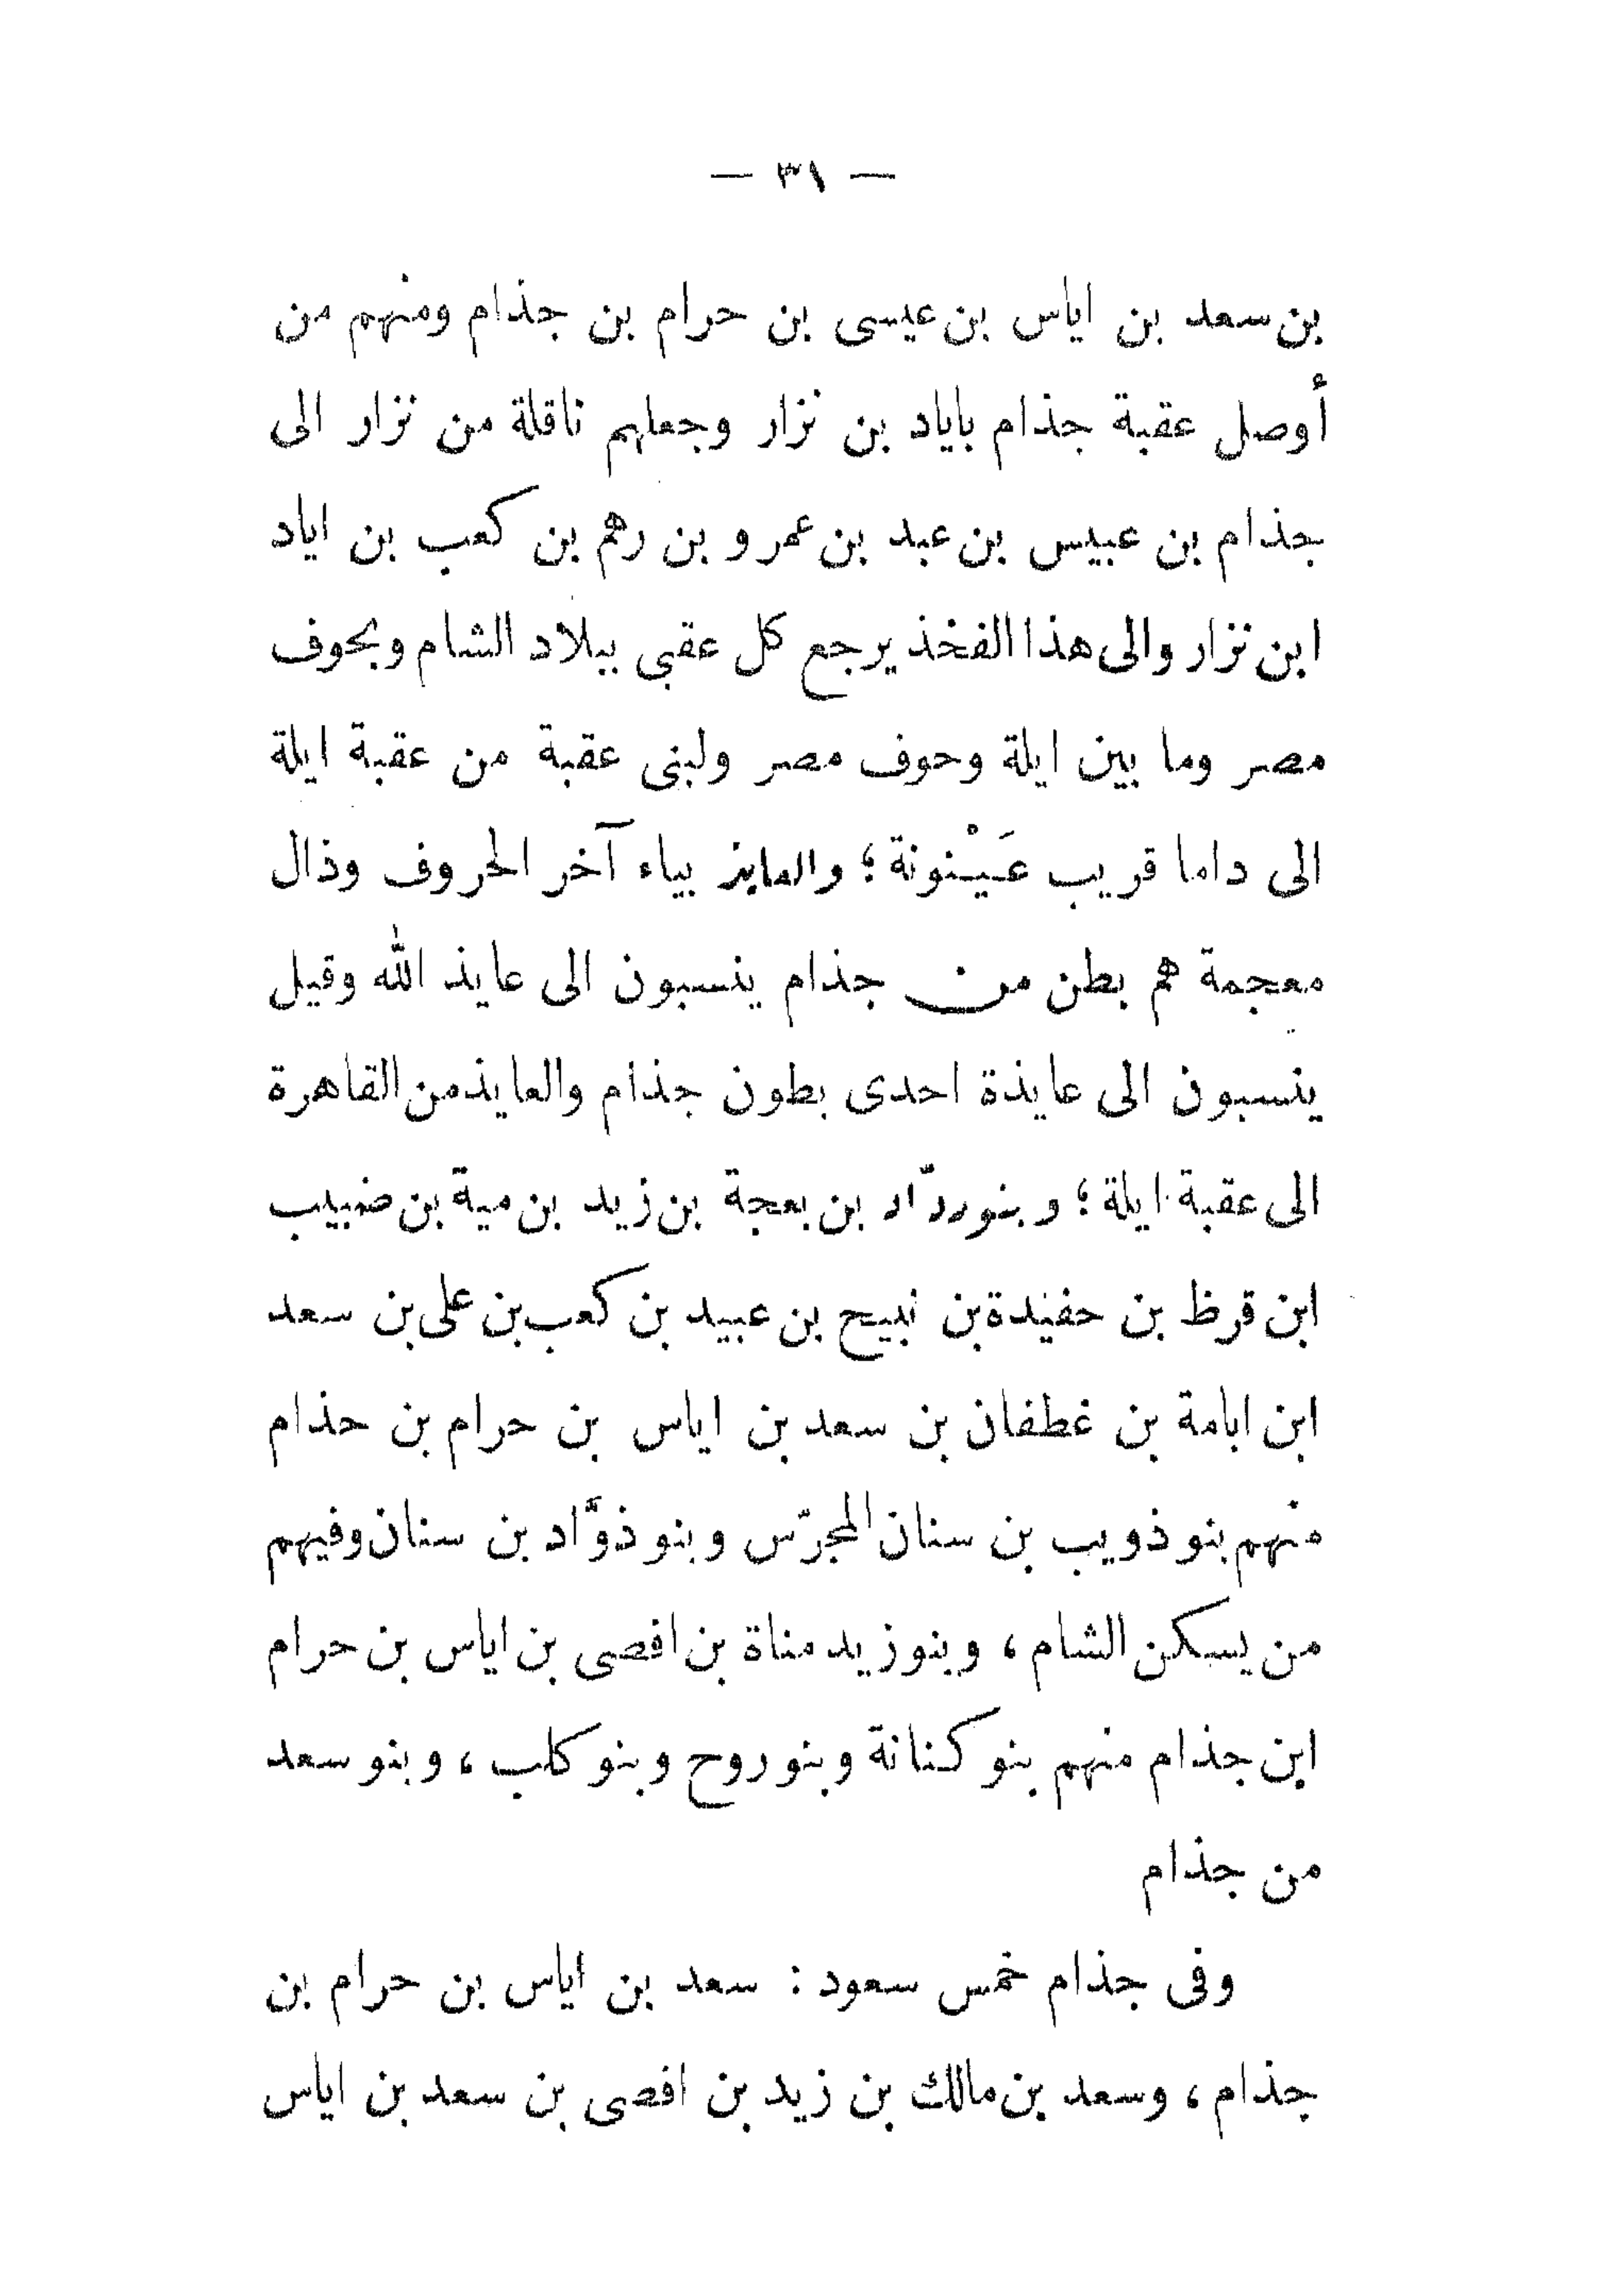 — ٣١ —
بن سعد بن اياس بن عيسى بن حرام بن جذام ومنهم من
أوصل عقبة جذام باياد بن نزار وجعلهم ناقلة من نزار الى
جذام بن عبيس بن عبد بن عمرو بن رهم بن كعب بن اياد
ابن نزار والى هذا الفخذ يرجع كل عقبى ببلاد الشام وبحوف
مصر وما بين ايلة وحوف مصر ولبنى عقبة من عقبة ايلة
الى داما قريب عَيْنونة ؛ والعايذ بياء آخر الحروف وذال
معجمة هم بطن من جذام ينسبون الى عايذ الله وقيل
ينسبون الى عايذة احدى بطون جذام والعايذ من القاهرة
الى عقبة ايلة ؛ وبنو ردّاد بن بعجة بن زيد بن مية بن ضبيب
ابن قرظ بن حفيدة بن نبيح بن عبيد بن كعب بن على بن سعد
ابن ابامة بن غطفان بن سعد بن اياس بن حرام بن حذام
منهم بنو ذويب بن سنان المجرّس وبنو ذوَّاد بن سنان وفيهم
من يسكن الشام ، وبنو زيد مناة بن افصى بن اياس بن حرام
ابن جذام منهم بنو كنانة وبنو روح وبنو كلب ، وبنو سعد
من جذام
وفى جذام خمس سعود : سعد بن اياس بن حرام بن
جذام ، وسعد بن مالك بن زيد بن افصى بن سعد بن اياس